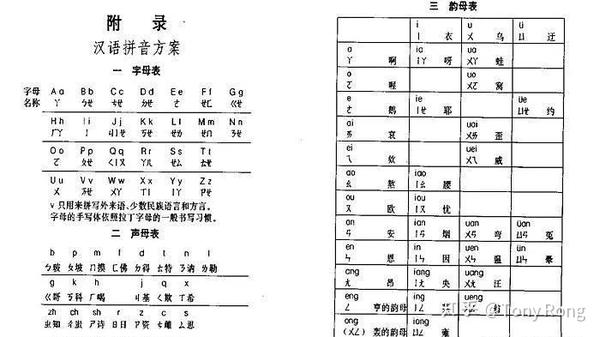 附 录
汉语拼音方案
一 字母表
字母 Aa Bb Cc Dd Ee Ff Gg
名称 ㄚ ㄅㄝ ㄘㄝ ㄉㄝ ㄜ ㄝㄈ ㄍㄝ
Hh Ii Jj Kk Ll Mm Nn
ㄏㄚ ㄧ ㄐㄧㄝ ㄎㄝ ㄝㄌ ㄝㄇ ㄋㄝ
Oo Pp Qq Rr Ss Tt
ㄛ ㄆㄝ ㄑㄧㄡ ㄚㄦ ㄝㄙ ㄊㄝ
Uu Vv Ww Xx Yy Zz
ㄨ ㄪㄝ ㄨㄚ ㄒㄧ ㄧㄚ ㄗㄝ
v 只用来拼写外来语、少数民族语言和方言。
字母的手写体依照拉丁字母的一般书写习惯。
二 声母表
b p m f d t n l
ㄅ玻 ㄆ坡 ㄇ摸 ㄈ佛 ㄉ得 ㄊ特 ㄋ讷 ㄌ勒
g k h j q x
ㄍ哥 ㄎ科 ㄏ喝 ㄐ基 ㄑ欺 ㄒ希
zh ch sh r z c s
ㄓ知 ㄔ蚩 ㄕ诗 ㄖ日 ㄗ资 ㄘ雌 ㄙ思
三 韵母表
i u ü
ㄧ 衣 ㄨ 乌 ㄩ 迂
a ia ua
ㄚ 啊 ㄧㄚ 呀 ㄨㄚ 蛙
o uo
ㄛ 喔 ㄨㄛ 窝
e ie üe
ㄜ 鹅 ㄧㄝ 耶 ㄩㄝ 约
ai uai
ㄞ 哀 ㄨㄞ 歪
ei uei
ㄟ 欸 ㄨㄟ 威
ao iao
ㄠ 熬 ㄧㄠ 腰
ou iou
ㄡ 欧 ㄧㄡ 忧
an ian uan üan
ㄢ 安 ㄧㄢ 烟 ㄨㄢ 弯 ㄩㄢ 冤
en in uen ün
ㄣ 恩 ㄧㄣ 因 ㄨㄣ 温 ㄩㄣ 晕
ang iang uang
ㄤ 昂 ㄧㄤ 央 ㄨㄤ 汪
eng ing ueng
ㄥ 亨的韵母 ㄧㄥ
ong iong
(ㄨㄥ) 轰的韵母 ㄩㄥ 雍
知乎 @Tony Rong